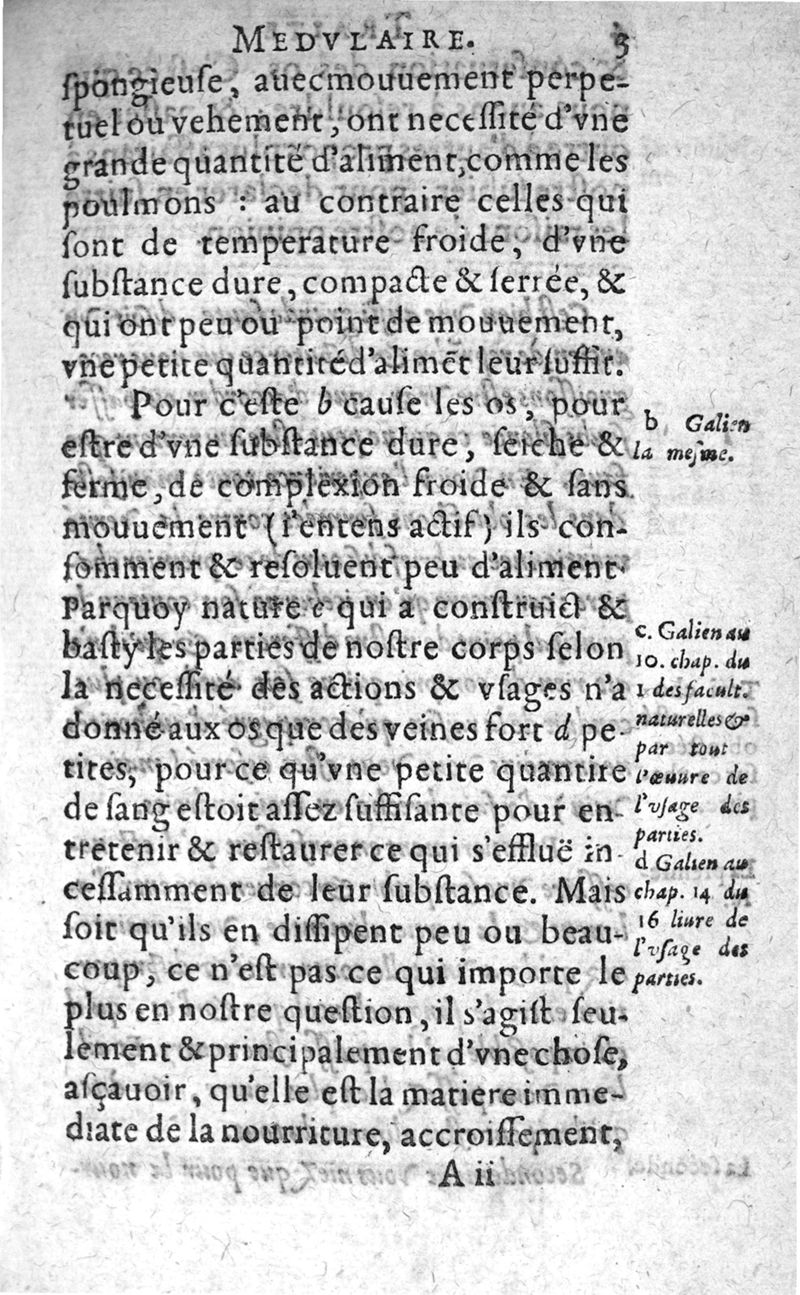 MEDVLAIRE. 3
ſpongieuſe, auecmouuement perpe-
tuel ou vehement, ont neceſſité d'vne
grande quantité d'aliment, comme les
poulmons : au contraire celles qui
ſont de temperature froide, d'vne
ſubſtance dure, compacte & ſerrée, &
qui ont peu ou point de mouuement,
vne petite quantité d'alimēt leur ſuffit.
Pour c'eſte b cauſe les os, pour
eſtre d'vne ſubſtance dure, ſeiche &
ferme, de complexion froide & ſans
mouuement (i'entens actif) ils con-
ſomment & reſoluent peu d'aliment.
Parquoy nature c qui a conſtruict &
baſty les parties de noſtre corps ſelon
la neceſſité des actions & vſages n'a
donné aux os que des veines fort d pe-
tites, pour ce qu'vne petite quantite
de ſang eſtoit aſſez ſuffiſante pour en-
tretenir & reſtaurer ce qui s'efflue in-
ceſſamment de leur ſubſtance. Mais
ſoit qu'ils en diſſipent peu ou beau-
coup, ce n'eſt pas ce qui importe le
plus en noſtre queſtion, il s'agiſt ſeu-
lement & principalement d'vne choſe,
aſçauoir, qu'elle eſt la matiere imme-
diate de la nourriture, accroiſſement,
A ii
b Galien
la meſme.
c. Galien au
10. chap. du
1 des facult.
naturelles &
par tout
l'œuure de
l'vſage des
parties.
d Galien au
chap. 14 du
16 liure de
l'vſage des
parties.